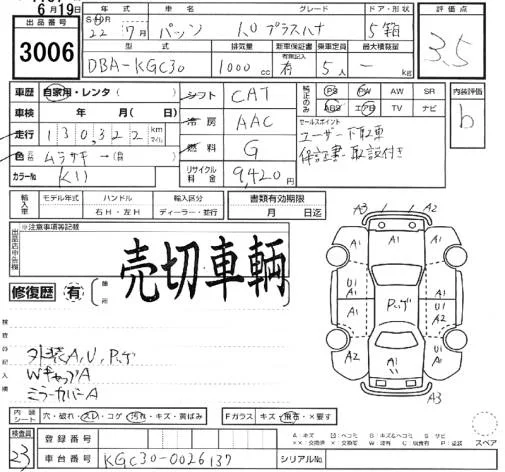 6月19日
出品番号 3006
年式 S H DR 22年7月 車名 パッソ グレード 1.0プラスハナ ドア・形状 5箱 評価点 3.5
型式 DBA-KGC30 排気量 1000cc 新車保証書 有 有無記入 乗車定員 5人 最大積載量 — kg
車歴 自家用・レンタ( ) シフト CAT 純正のみ PS PW AW SR 内装評価 b
車検 年 月( 日) 冷房 AAC ABS エアB TV ナビ
走行 130,322 km マイル 燃料 G セールスポイント ユーザー下取車
色 元色 ムラサキ → (色 ) 保証書・取説付き
カラーNo K11 リサイクル料金 9,420円
輸入車 モデル年式 ハンドル 右H・左H 輸入区分 ディーラー・並行 書類有効期限 月 日迄
出品店申告欄 ※注意事項等記載
売切車両
修復歴 有 箇所
A3 A2
A1 A1 A1
A1 U1 U1
A2 A1 パッゲ A1
A1 A1
A3
検査の記入欄
外装A,U,パッゲ
WキャップA
ミラーカバーA
内装シート 穴・破れ・スレ・コゲ・汚れ・キズ・黄ばみ Fガラス キズ・飛石・×要す
スペア
検査員 23 登録番号
車台番号 KGC30-0026137 シリアルNo